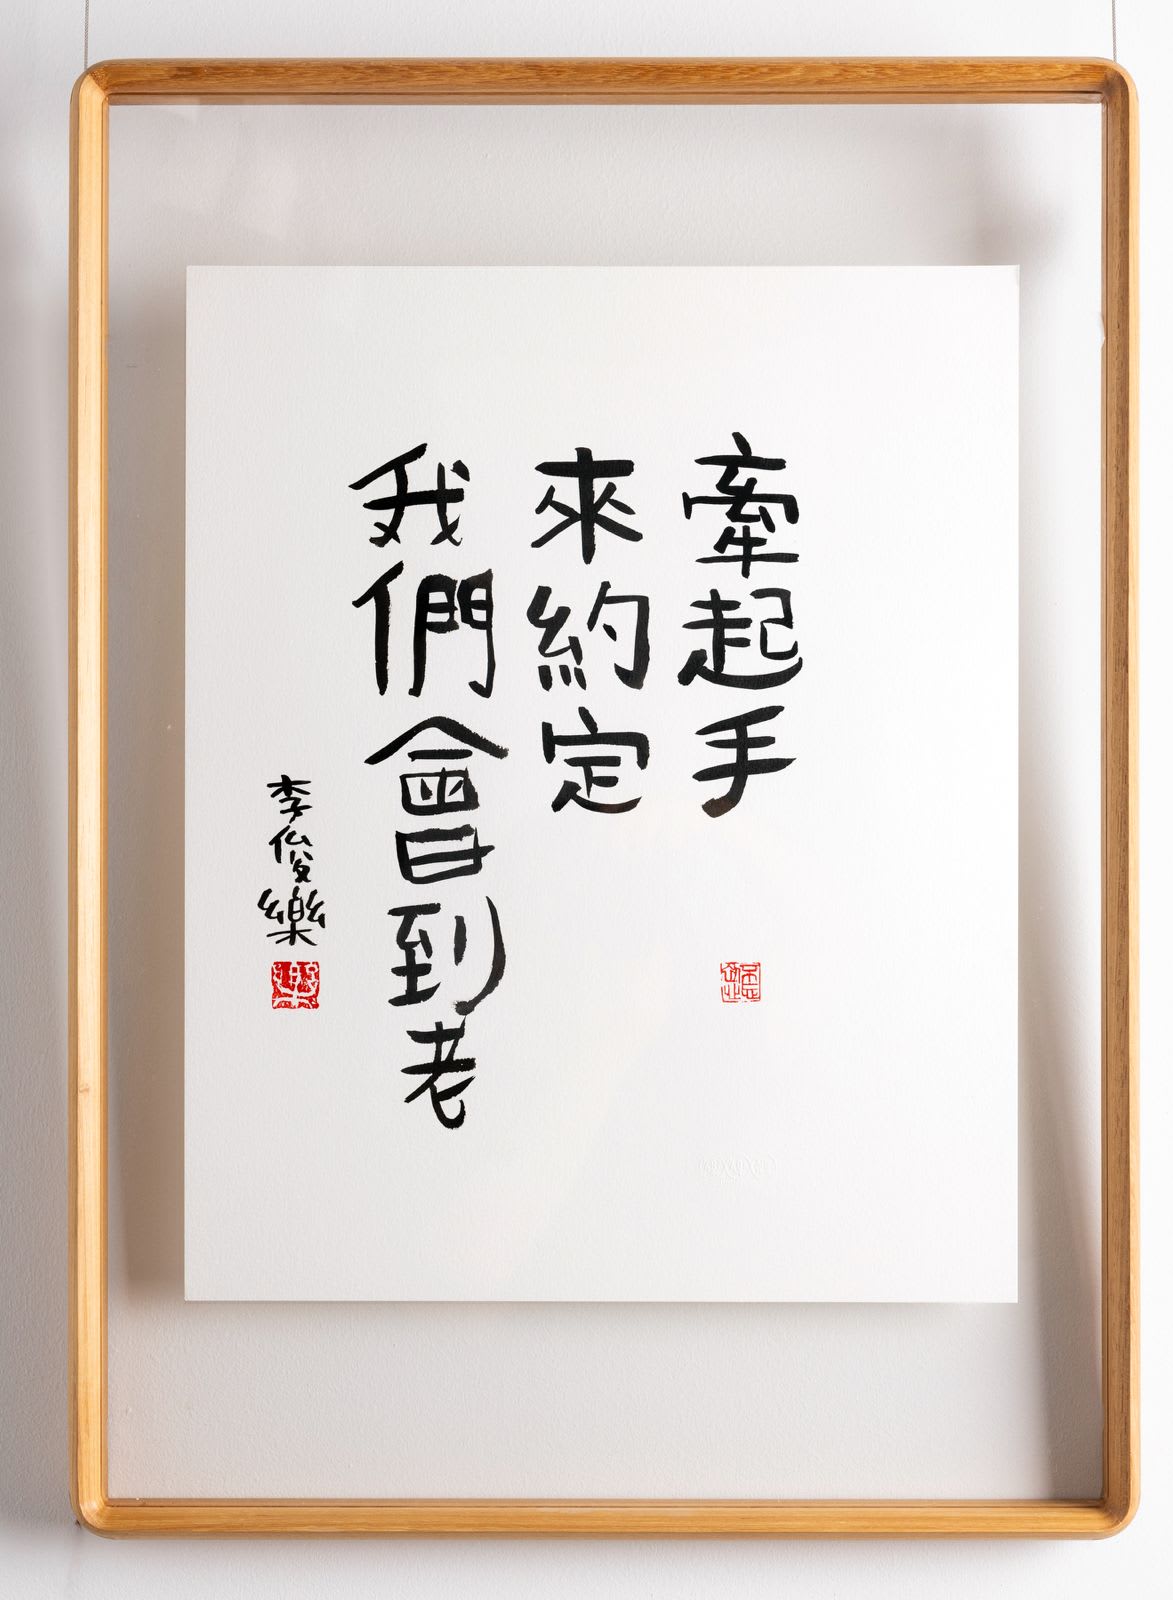 牽起手
來約定
我們會到老
李俊樂